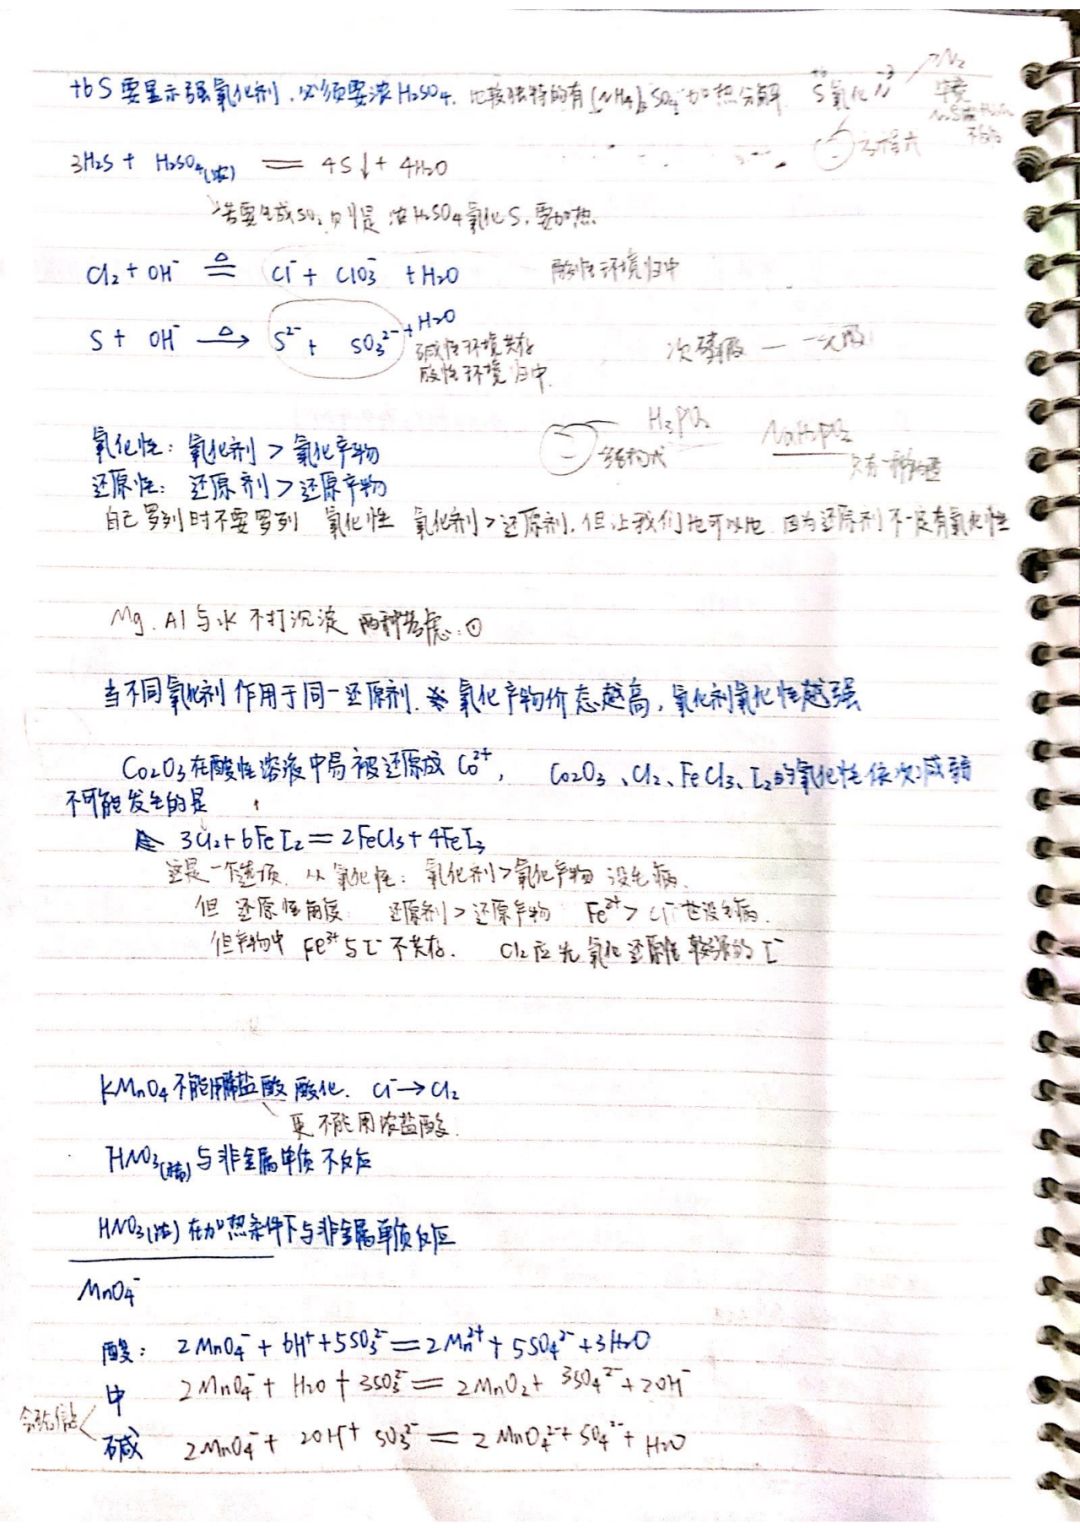 +6 S 要显示强氧化剂，必须要浓H₂SO₄. 比较独特的有(NH₄)₂SO₄加热分解 S氧化N → N₂
方程式
3H₂S + H₂SO₄(浓) = 4S↓ + 4H₂O
若要生成SO₂则是浓H₂SO₄氧化S，要加热.
Cl₂ + OH⁻ ≜ Cl⁻ + ClO₃⁻ + H₂O 酸性环境归中
S + OH⁻ △→ S²⁻ + SO₃²⁻ + H₂O
碱性环境共存
酸性环境归中.
次磷酸 — 一元酸
H₃PO₂ NaH₂PO₂
结构式 只有一种
氧化性：氧化剂 > 氧化产物
还原性：还原剂 > 还原产物
自己罗列时不要罗列 氧化性 氧化剂>还原剂. 但让我们也可以 因为还原剂不一定有氧化性
Mg. Al与水 不打沉淀 两种考虑:
当不同氧化剂作用于同一还原剂. 氧化产物价态越高，氧化剂氧化性越强
Co₂O₃在酸性溶液中易被还原成Co²⁺， Co₂O₃、Cl₂、FeCl₃、I₂的氧化性依次减弱
不可能发生的是
3Cl₂ + 6FeI₂ = 2FeCl₃ + 4FeI₃
这是一个选项. 从氧化性：氧化剂>氧化产物 没毛病.
但 还原性角度 还原剂>还原产物 Fe²⁺ > Cl⁻ 也没毛病.
但产物中 Fe³⁺与I⁻不共存. Cl₂应先氧化还原性较强的I⁻
KMnO₄不能用稀盐酸酸化. Cl⁻→Cl₂
更不能用浓盐酸.
HNO₃(稀)与非金属单质不反应
HNO₃(浓)在加热条件下与非金属单质反应
MnO₄⁻
酸：2MnO₄⁻ + 6H⁺ + 5SO₃²⁻ = 2Mn²⁺ + 5SO₄²⁻ + 3H₂O
中 2MnO₄⁻ + H₂O + 3SO₃²⁻ = 2MnO₂ + 3SO₄²⁻ + 2OH⁻
会给信息
碱 2MnO₄⁻ + 2OH⁻ + SO₃²⁻ = 2MnO₄²⁻ + SO₄²⁻ + H₂O